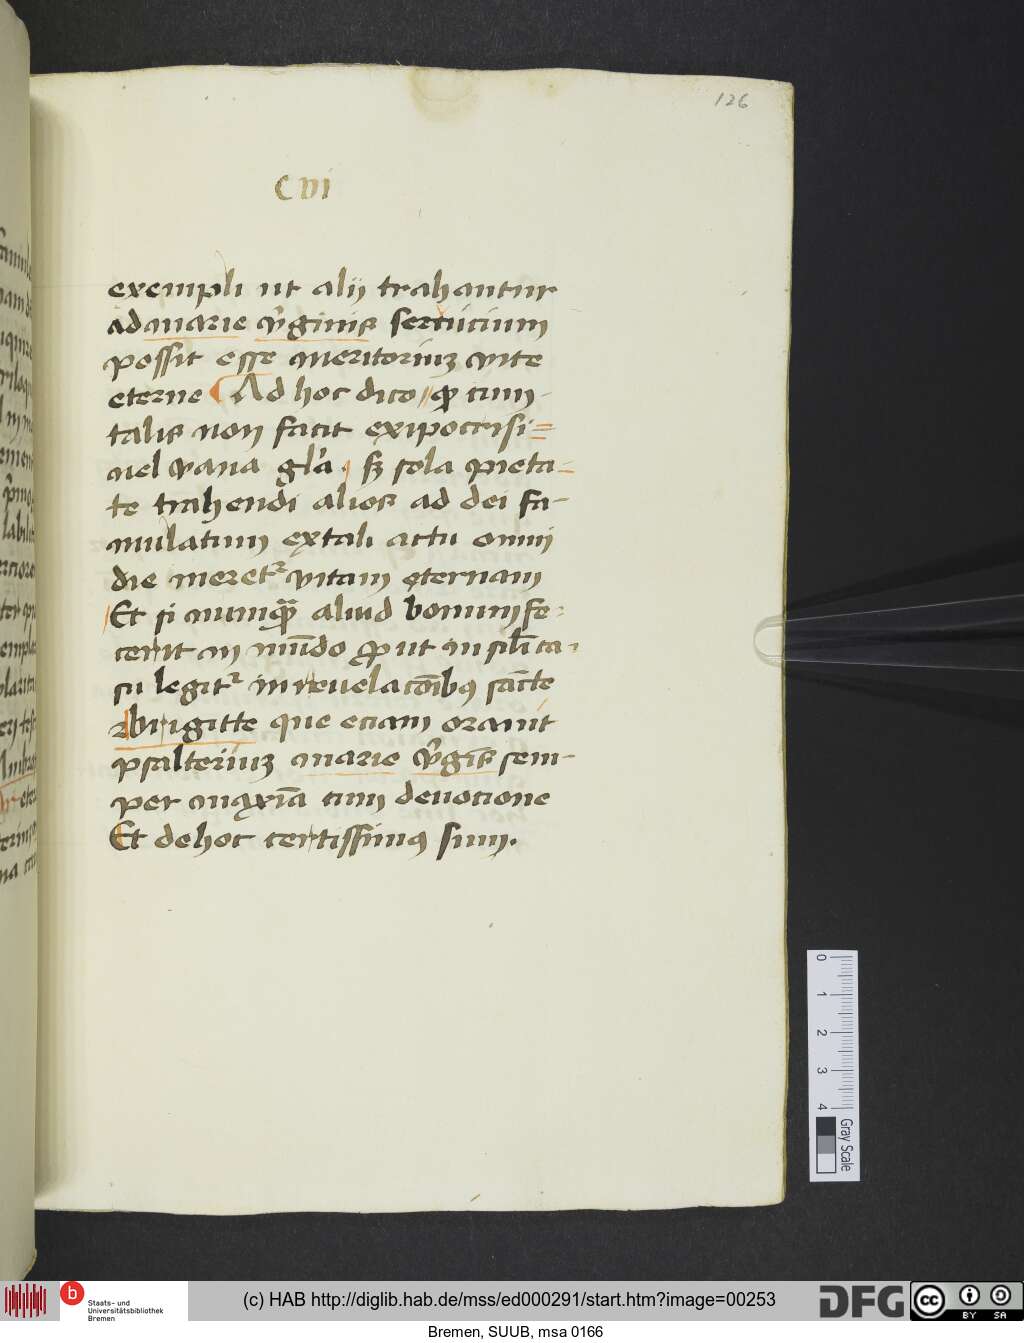 126
C vi
exempli ut alij trahantur
ad marie v̓ginis servicium
possit esse meritoriuʒ vite
eterne Ad hoc dico ꝙ cum
talis non facit exipocrisi
vel vana gl̓a sꝫ sola pieta
te trahendi alios ad dei fa
mulatum extali actu omni
die meret᷑ vitam eternam
Et si numqᷓ aliud bonum fe
cerit in mūdo ꝓut in sil̄i ca
su legit᷑ in reuelacōībꝯ sācte
Birgitte que eciam orauit
psalteriuʒ marie v̓gīs sem
per maxīa cum deuocione
Et dehoc certissimꝯ sum.
0
1
2
3
4
Gray Scale
b
Staats- und
Universitätsbibliothek
Bremen
(c) HAB http://diglib.hab.de/mss/ed000291/start.htm?image=00253
DFG
cc
BY SA
Bremen, SUUB, msa 0166